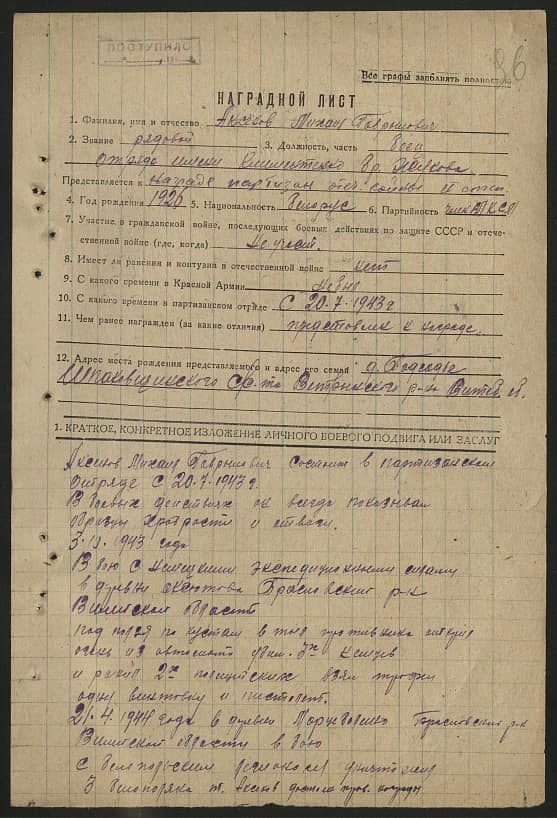 ПОСТУПИЛО
26
Все графы заполнять полностью
НАГРАДНОЙ ЛИСТ
1. Фамилия, имя и отчество Аксёнов Михаил Гаврилович
2. Звание рядовой 3. Должность, часть боец
отряда имени бр.
Представляется к награде партизан отеч. войны
4. Год рождения 1920 5. Национальность белорус 6. Партийность член ВЛКСМ
7. Участие в гражданской войне, последующих боевых действиях по защите СССР и отече-
ственной войне (где, когда) Не участ.
8. Имеет ли ранения и контузии в отечественной войне нет
9. С какого времени в Красной Армии не был
10. С какого времени в партизанском отряде С 20.7.1943 г
11. Чем ранее награжден (за какие отличия) представлен к награде.
12. Адрес места рождения представляемого и адрес его семьи д.
с/с-та Ветринского р-на Витеб. об.
1. КРАТКОЕ, КОНКРЕТНОЕ ИЗЛОЖЕНИЕ ЛИЧНОГО БОЕВОГО ПОДВИГА ИЛИ ЗАСЛУГ
Аксёнов Михаил Гаврилович состоит в партизанском
отряде с 20.7.1943 г.
В боевых действиях он всегда показывал
образцы храбрости и отваги.
1943 года
В бою с немецкими экспедиционными силами
в деревни Браславский р-н
Вилейской области
под ползя по кустам в тыл противника открыл
огонь из автомата убил 3х немцев
и ранил 2х полицейских взял трофеи
одну винтовку и пистолет.
21.4.1944 года в деревни Браславский р-н
Вилейской области в бою
с уничтожил
3 т. Аксёнов достоин прав. награды